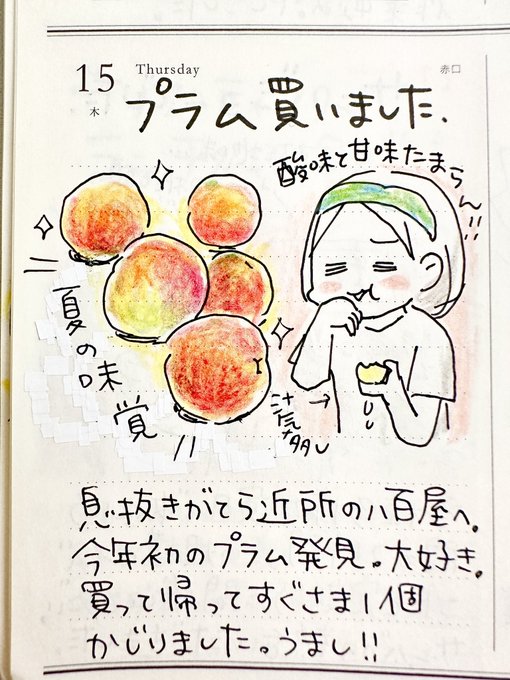 15 Thursday 赤口
木
プラム買いました.
酸味と甘味たまらん!!
夏の味覚
汁気多し
息抜きがてら近所の八百屋へ。
今年初のプラム発見。大好き。
買って帰ってすぐさま1個
かじりました。うまし!!